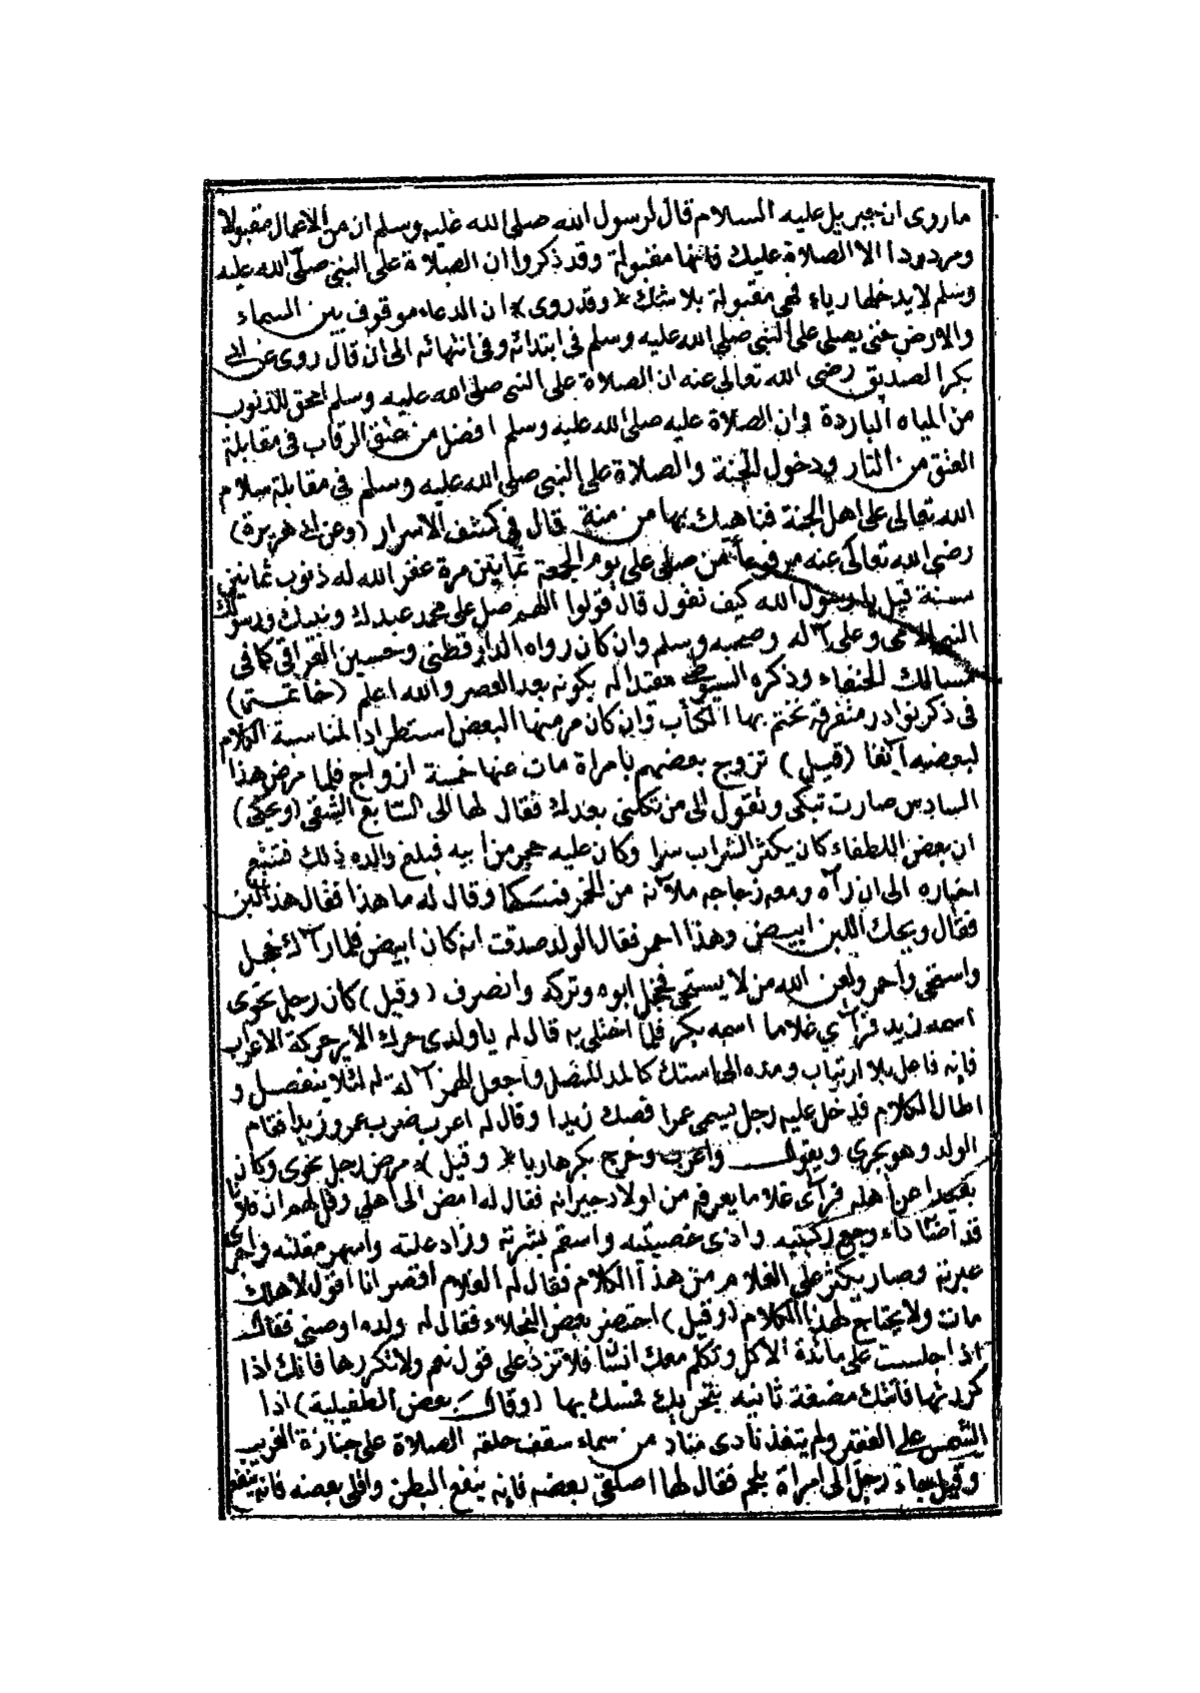 ما روى ان جبريل عليه السلام قال لرسول الله صلى الله عليه وسلم ان من الاعمال مقبولا
ومردودا الا الصلاة عليك فانها مقبولة وقد ذكروا ان الصلاة على النبى صلى الله عليه
وسلم لا يدخلها رياء فهى مقبولة بلا شك (وقد روى) ان الدعاء موقوف بين السماء
والارض حتى يصلى على النبى صلى الله عليه وسلم فى ابتدائه وفى انتهائه الى ان قال روى عن ابى
بكر الصديق رضى الله تعالى عنه ان الصلاة على النبى صلى الله عليه وسلم امحق للذنوب
من المياه الباردة وان الصلاة عليه صلى الله عليه وسلم افضل من عتق الرقاب فى مقابلة
العتق من النار ودخول الجنة والصلاة على النبى صلى الله عليه وسلم فى مقابلة سلام
الله تعالى على اهل الجنة فناهيك بها من منة قال فى كشف الاسرار (وعن ابى هريرة)
رضى الله تعالى عنه مرفوعا من صلى على يوم الجمعة ثمانين مرة غفر الله له ذنوب ثمانين
سنة قيل يا رسول الله كيف نقول قال قولوا اللهم صل على محمد عبدك ونبيك ورسولك
النبى الامى وعلى آله وصحبه وسلم وان كان رواه الدارقطنى وحسين العراقى كما فى
مسالك الحنفاء وذكره السيوطى مقتدا له بكونه بعد العصر والله اعلم (خاتمة)
فى ذكر نوادر متفرقة نختم بها الكتاب وان كان مر منها البعض استطرادا لمناسبة الكلام
لبعضه آنفا (قيل) تزوج بعضهم بامرأة مات عنها خمسة ازواج فلما مرض هذا
السادس صارت تبكى وتقول الى من تكلنى بعدك فقال لها الى السابع الشقى (ويحكى)
ان بعض اللطفاء كان يكثر الشراب سرا وكان عليه حجر من ابيه فبلغ والده ذلك فتتبع
اخباره الى ان رآه ومعه زجاجه ملآنة من الخمر فمسكها وقال له ما هذا فقال هذا لبن
فقال ويحك اللبن ابيض وهذا احمر فقال الولد صدقت انه كان ابيض فلما رآك خجل
واستحى واحمر ولعن الله من لا يستحى فخجل ابوه وتركه وانصرف (وقيل) كان رجل نحوى
اسمه زيد فرأى غلاما اسمه بكر فلما اختلى به قال له يا ولدى حرك الأير حركة الاعراب
فإنه فاعل بلا ارتياب ومده الى استك كالمد المتصل واجعل الهمز آلة له لئلا ينفصل و
اطال الكلام فدخل عليه رجل يسمى عمرا فصك زيدا وقال له اعرب ضرب عمرو زيدا فقام
الولد وهو يجرى ويقول واعرب وخرج بكر هاربا (وقيل) مرض رجل نحوى وكان
بعيدا عن اهله فرأى غلاما يعرفه من اولاد جيرانه فقال له امض الى اهلى وقل لهم ان فلانا
قد اضناه داء وجع ركبتيه واذى عصبيته واسقم بشرته وزاد علته واسهر مقلته واجرى
عبرته وصار يكثر على الغلام من هذا الكلام فقال له الغلام اقصر انا اقول لاهلك
مات ولا يحتاج لهذا الكلام (وقيل) احتضر بعض البخلاء فقال له ولده اوصنى فقال
اذا جلست على مائدة الاكل وتكلم معك انسان فلا تزد على قول نعم ولا تكررها فانك اذا
كررتها فاتتك مضغة ثانية بتحريك نمسك بها (وقال بعض الطفيلية) اذا
التمس على الفقر ولم يتغذ نادى مناد من سماء سقف حلقه الصلاة على جنازة الغريب
وقيل جاء رجل الى امرأة بلحم فقال لها اصلقى بعضه فإنه ينفع البطن واقلى بعضه فانه ينفع